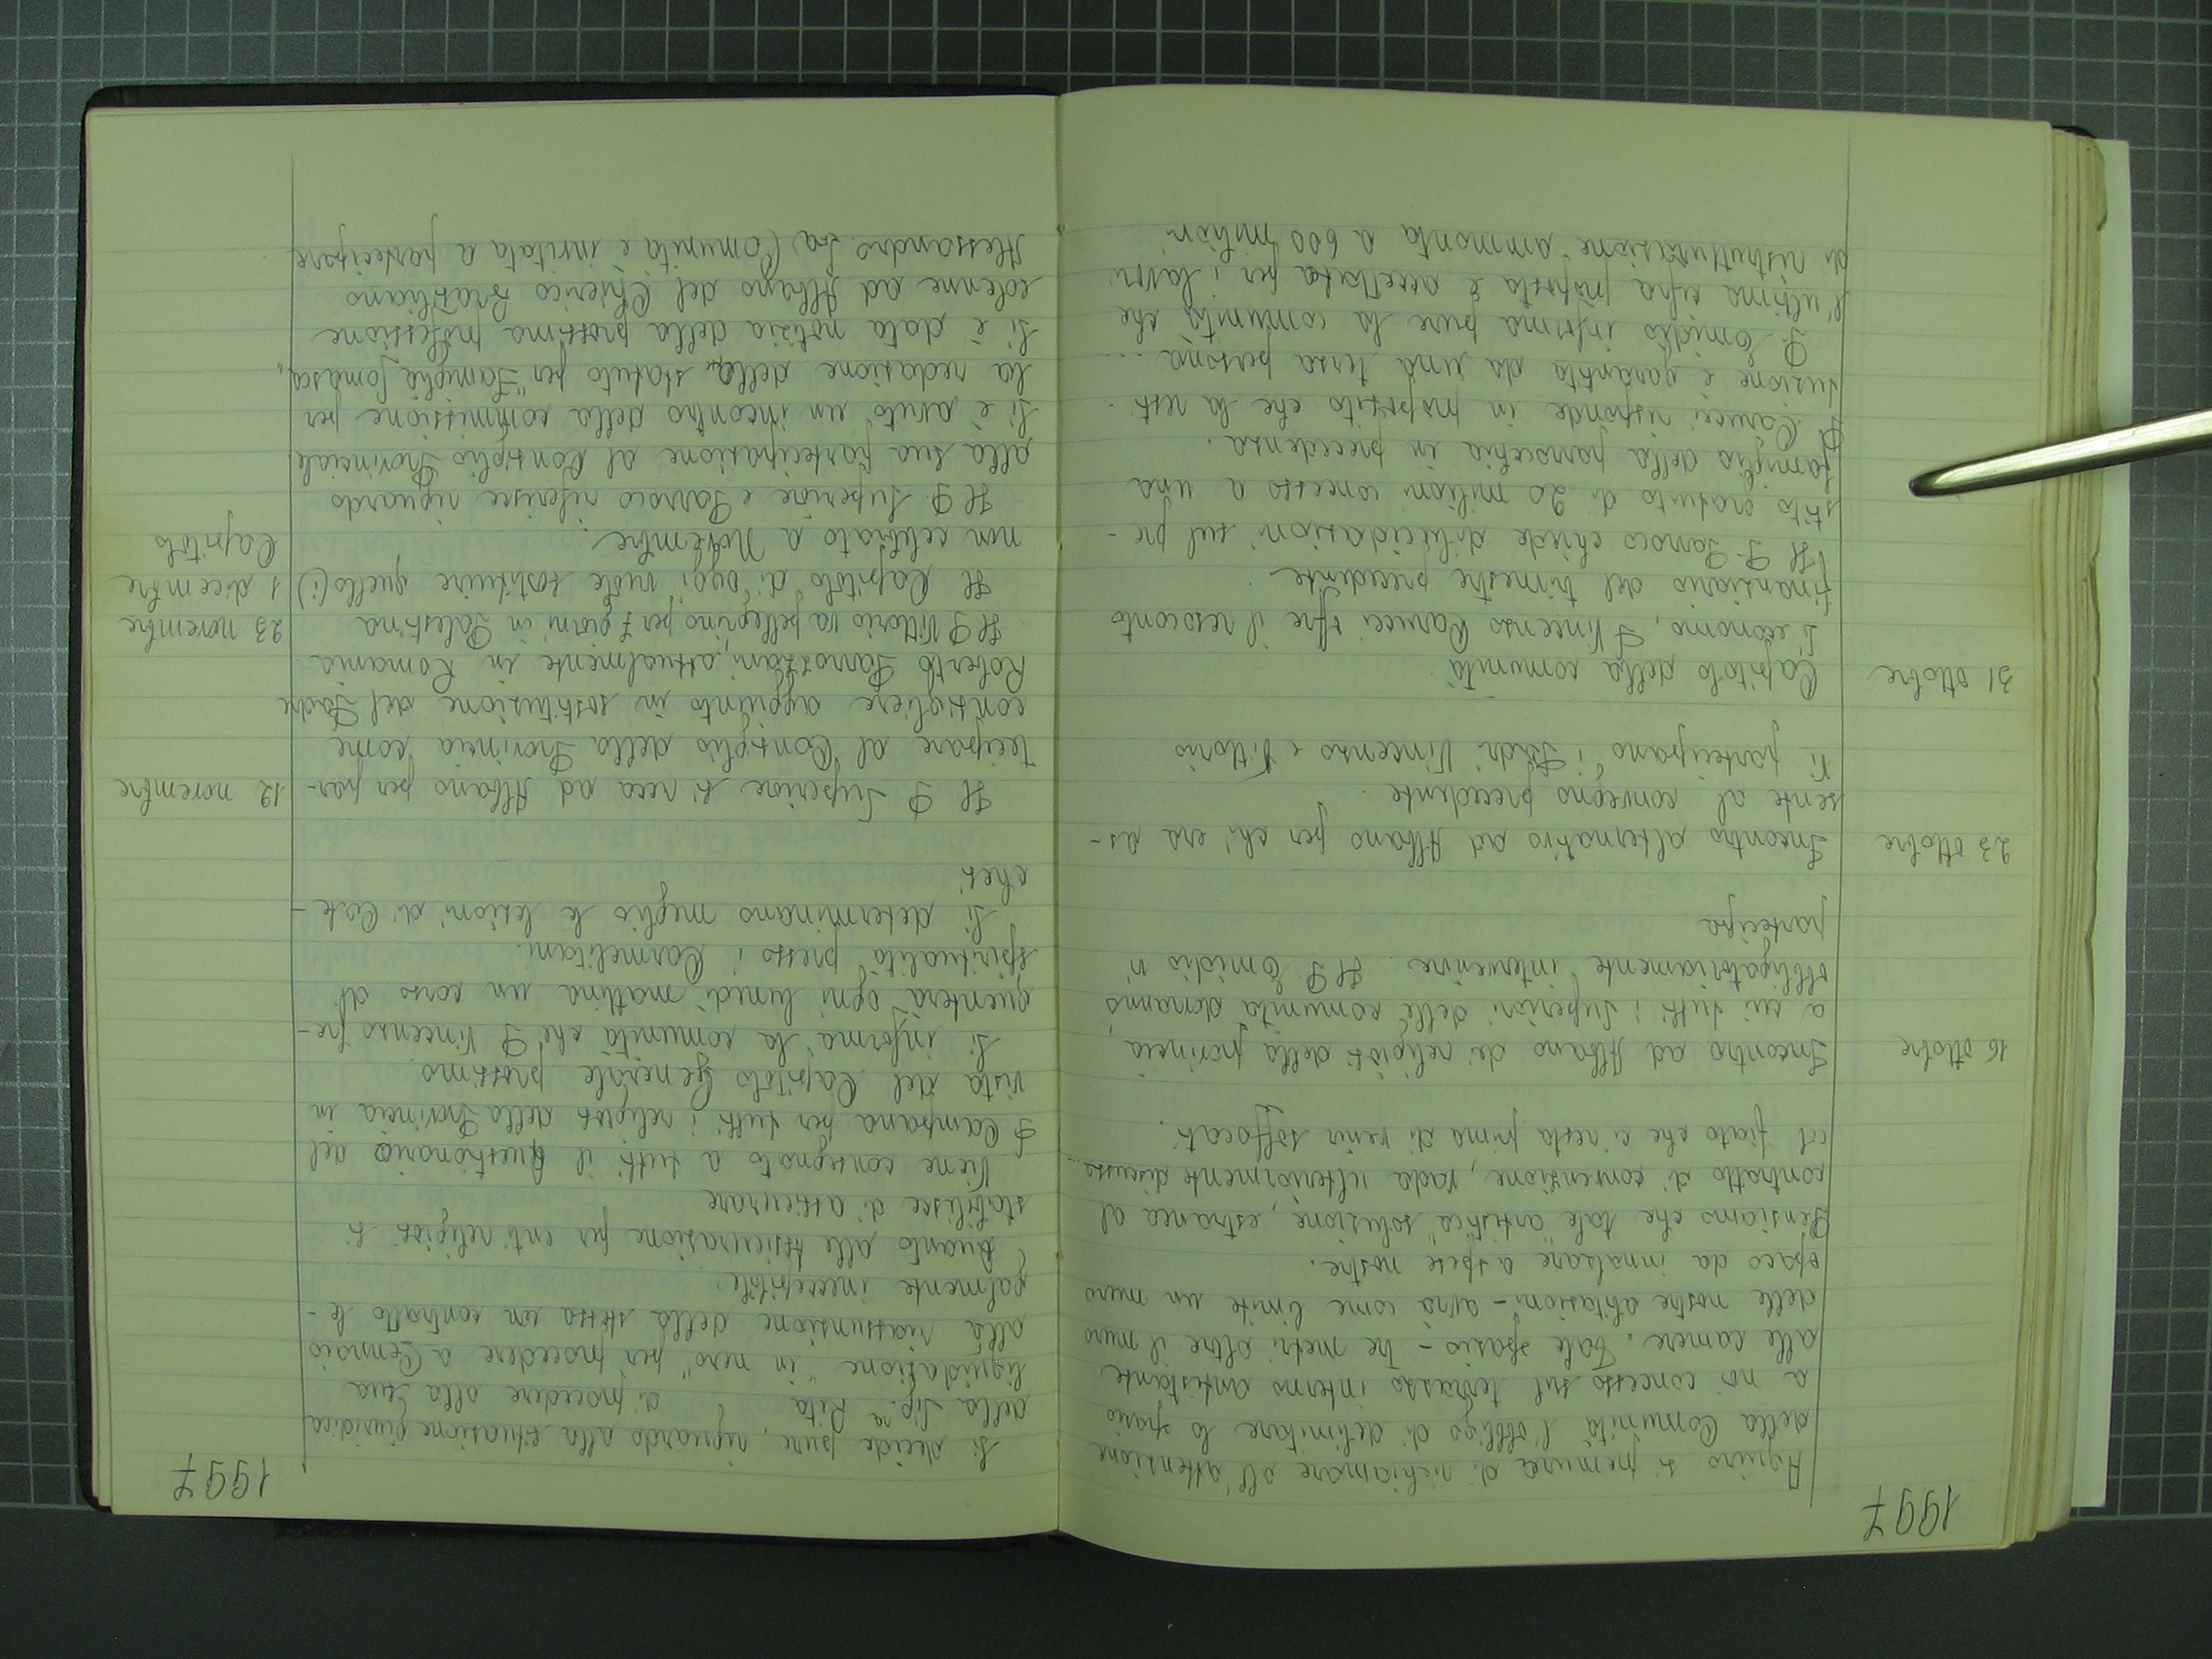 1997
Aquiro si premura di richiamare all'attenzione
della Comunità l'obbligo di delimitare lo spazio
a noi concesso sul terrazzo interno antistante
alle camere. Tale spazio - tre metri oltre il muro
delle nostre abitazioni - avrà come limite un muro
opaco da innalzare a spese nostre.
Pensiamo che tale "artistica" soluzione, estranea al
contratto di convenzione, vada ulteriormente discussa...
col fiato che ci resta prima di venir soffocati.
16 ottobre
Incontro ad Albano dei religiosi della provincia,
a cui tutti i Superiori delle comunità dovranno,
obbligatoriamente intervenire. Il P. Emidio vi
partecipa
23 ottobre
Incontro alternativo ad Albano per chi era as-
sente al convegno precedente.
Vi partecipano i Padri Vincenzo e Vittorio
31 ottobre
Capitolo della comunità.
L'economo, P. Vincenzo Carucci offre il resoconto
finanziario del trimestre precedente.
(Il P. Parroco chiede dilucidazioni sul pre-
stito gratuito di 20 milioni concesso a una
famiglia della parrocchia in precedenza.
P. Carucci risponde in proposito che la resti-
tuzione è garantita da una terza persona...
P. Emidio informa pure la comunità che
l'ultima cifra proposta e accettata per i lavori
di ristrutturazione ammonta a 600 milioni
1997
Si decide pure, riguardo alla situazione giuridica
della Sig.ra Rita, di procedere alla sua
liquidazione "in nero" per procedere a Gennaio
alla riassunzione della stessa con contratto le-
galmente ineccepibile.
Quanto alle Assicurazione per enti religiosi si
stabilisce di assicurare
Viene consegnato a tutti il Questionario del
P. Campana per tutti i religiosi della Provincia in
vista del Capitolo Generale prossimo.
Si informa la comunità che P. Vincenzo fre-
quenterà ogni lunedì mattina un corso di
spiritualità presso i Carmelitani.
Si determinano meglio le lezioni di Cate-
chesi
12 novembre
Il P. Superiore si reca ad Albano per par-
tecipare al Consiglio della Provincia come
consigliere aggiunto in sostituzione del Padre
Roberto attualmente in Romania
23 novembre
Il P. Vittorio va pellegrino per 7 giorni in Palestina
1 dicembre
Capitolo
Il Capitolo di oggi vuole sostituire quello (i)
non celebrato a Novembre.
Il P. Superiore e Parroco riferisce riguardo
alla sua partecipazione al Consiglio Provinciale
Si è avuto un incontro della commissione per
la redazione dello statuto per "Famiglia Somasca"
Si è data notizia della prossima professione
solenne ad Albano del Chierico Brasiliano
Alessandro. La Comunità è invitata a partecipare